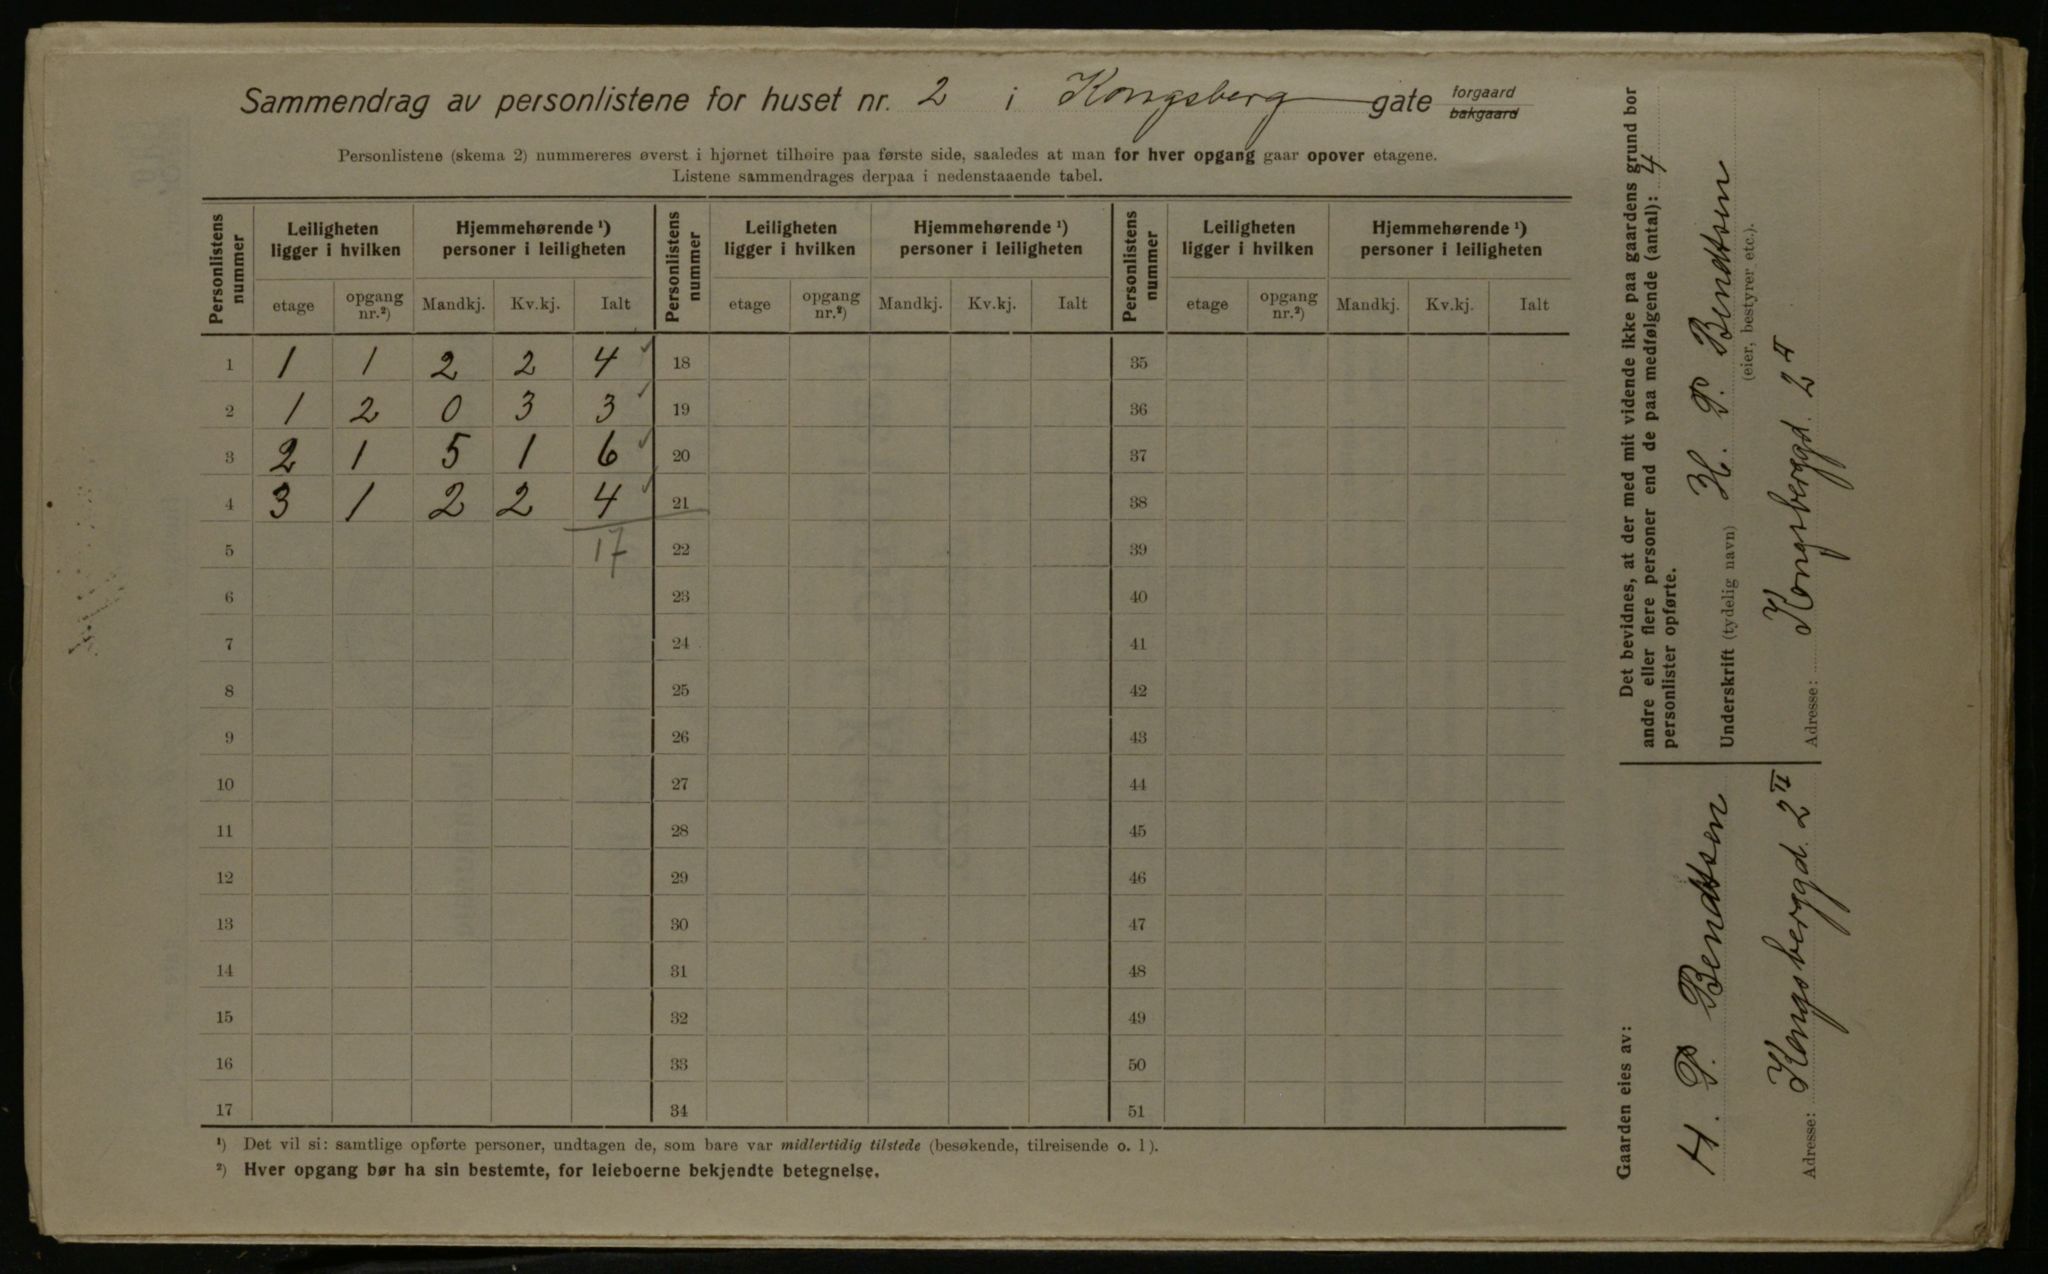 Sammendrag av personlistene for huset nr. 2 i Kongsberg gate forgaard bakgaard
Personlistene (skema 2) nummereres øverst i hjørnet tilhøire paa første side, saaledes at man for hver opgang gaar opover etagene.
Listene sammendrages derpaa i nedenstaaende tabel.
Personlistens nummer | Leiligheten ligger i hvilken | Hjemmehørende ¹) personer i leiligheten | Personlistens nummer | Leiligheten ligger i hvilken | Hjemmehørende ¹) personer i leiligheten | Personlistens nummer | Leiligheten ligger i hvilken | Hjemmehørende ¹) personer i leiligheten
etage | opgang nr.²) | Mandkj. | Kv.kj. | Ialt | etage | opgang nr.²) | Mandkj. | Kv.kj. | Ialt | etage | opgang nr.²) | Mandkj. | Kv.kj. | Ialt
1 1 1 2 2 4 18 35
2 1 2 0 3 3 19 36
3 2 1 5 1 6 20 37
4 3 1 2 2 4 21 38
5 17 22 39
6 23 40
7 24 41
8 25 42
9 26 43
10 27 44
11 28 45
12 29 46
13 30 47
14 31 48
15 32 49
16 33 50
17 34 51
¹) Det vil si: samtlige opførte personer, undtagen de, som bare var midlertidig tilstede (besøkende, tilreisende o. l).
²) Hver opgang bør ha sin bestemte, for leieboerne bekjendte betegnelse.
Det bevidnes, at der med mit vidende ikke paa gaardens grund bor
andre eller flere personer end de paa medfølgende (antal): 4
personlister opførte.
Underskrift (tydelig navn) H. P. Bendtsen
(eier, bestyrer etc.).
Adresse: Kongsberggd. 2 II
Gaarden eies av:
H. P. Bendtsen
Adresse: Kongsberggd. 2 II